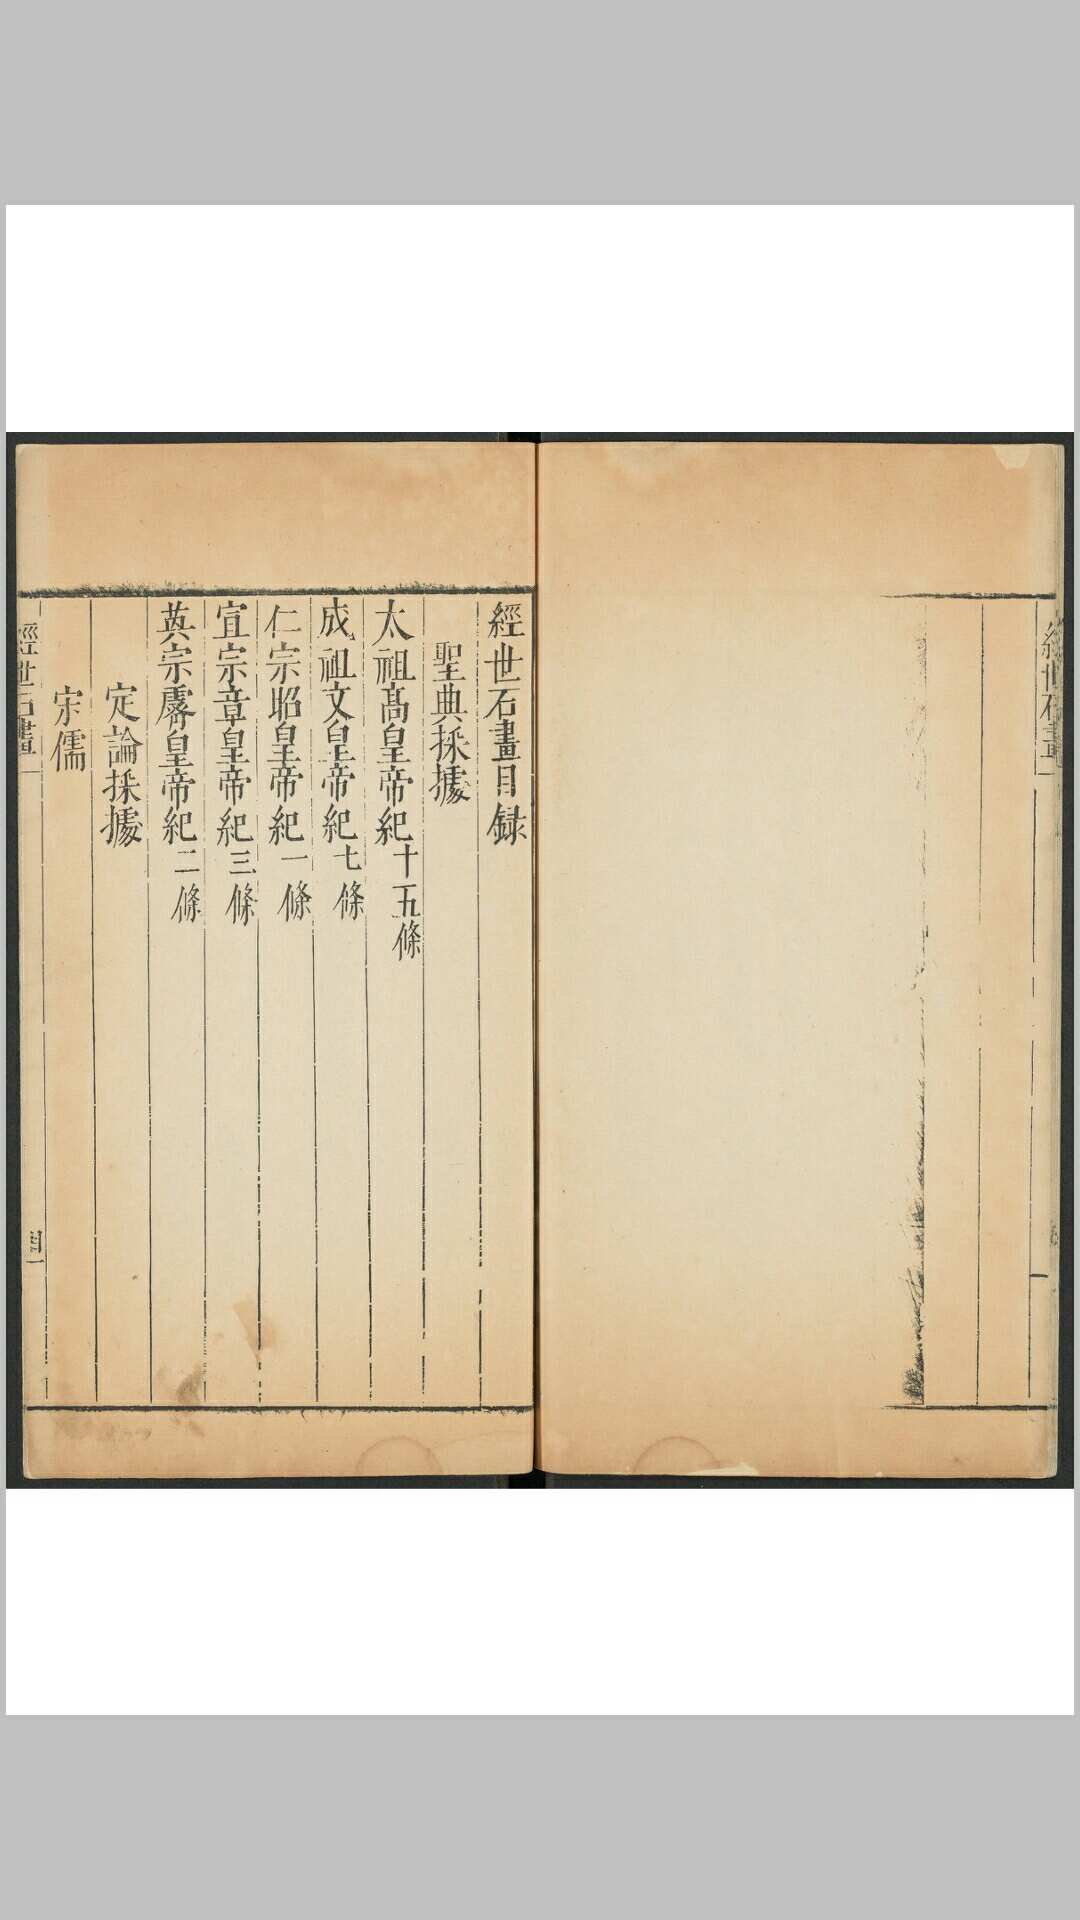 經世石畫
經世石畫目録
聖典採據
太祖髙皇帝紀十五條
成祖文皇帝紀七條
仁宗昭皇帝紀一條
宣宗章皇帝紀三條
英宗睿皇帝紀二條
定論採據
宋儒
經世石畫